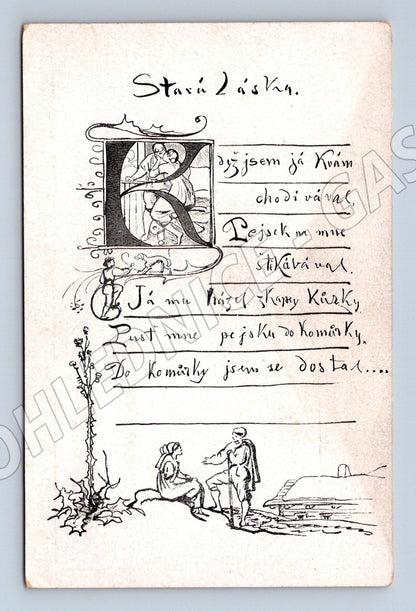 Stará Láska.
Když jsem já k Vám
chodívával,
Pejsek na mne
štkávával.
Já mu házel z kapsy Kůrky
Pust mne pejsku do Komůrky,
Do Komůrky jsem se dostal....
POHLEDNICE - GAS